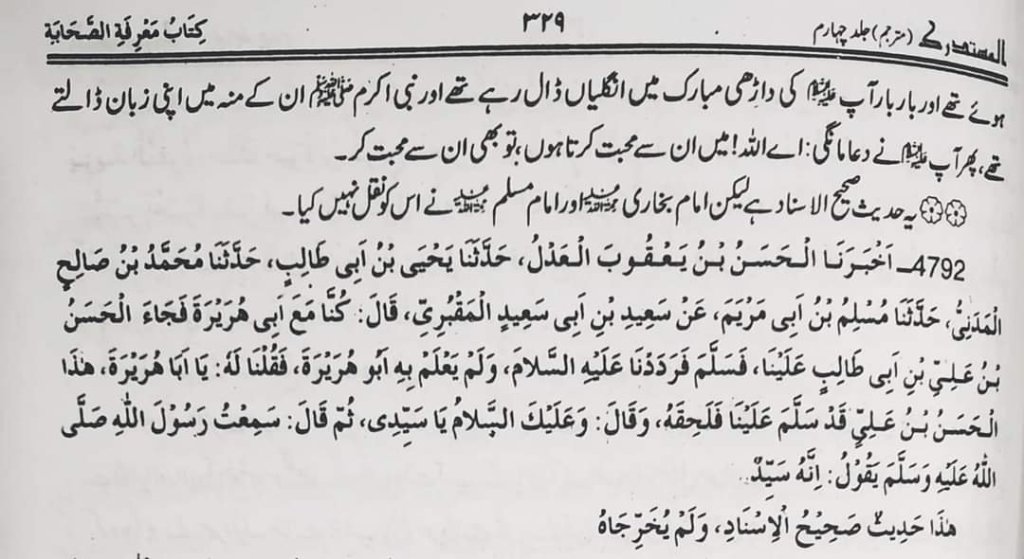 المستدرک (مترجم) جلد چہارم ۳۲۹ کِتَابُ مَعْرِفَةِ الصَّحَابَةِ
ہوئے تھے اور بار بار آپ ﷺ کی داڑھی مبارک میں انگلیاں ڈال رہے تھے اور نبی اکرم ﷺ ان کے منہ میں اپنی زبان ڈالتے
تھے، پھر آپ ﷺ نے دعا مانگی: اے اللہ! میں ان سے محبت کرتا ہوں، تو بھی ان سے محبت کر۔
۞۞ یہ حدیث صحیح الاسناد ہے لیکن امام بخاری رحمۃ اللہ علیہ اور امام مسلم رحمۃ اللہ علیہ نے اس کو نقل نہیں کیا۔
4792ـ اَخْبَرَنَا الْحَسَنُ بْنُ يَعْقُوبَ الْعَدْلُ، حَدَّثَنَا يَحْيَى بْنُ اَبِى طَالِبٍ، حَدَّثَنَا مُحَمَّدُ بْنُ صَالِحٍ
الْمَدَنِيُّ، حَدَّثَنَا مُسْلِمُ بْنُ اَبِى مَرْيَمَ، عَنْ سَعِيدِ بْنِ اَبِى سَعِيدٍ الْمَقْبُرِيِّ، قَالَ: كُنَّا مَعَ اَبِى هُرَيْرَةَ فَجَاءَ الْحَسَنُ
بْنُ عَلِيِّ بْنِ اَبِى طَالِبٍ عَلَيْنَا، فَسَلَّمَ فَرَدَدْنَا عَلَيْهِ السَّلامَ، وَلَمْ يَعْلَمْ بِهِ اَبُو هُرَيْرَةَ، فَقُلْنَا لَهُ: يَا اَبَا هُرَيْرَةَ، هٰذَا
الْحَسَنُ بْنُ عَلِيٍّ قَدْ سَلَّمَ عَلَيْنَا فَلَحِقَهُ، وَقَالَ: وَعَلَيْكَ السَّلامُ يَا سَيِّدِى، ثُمَّ قَالَ: سَمِعْتُ رَسُوْلَ اللّٰهِ صَلَّى
اللّٰهُ عَلَيْهِ وَسَلَّمَ يَقُوْلُ: اِنَّهُ سَيِّدٌ
هٰذَا حَدِيثٌ صَحِيْحُ الْاِسْنَادِ، وَلَمْ يُخَرِّجَاهُ